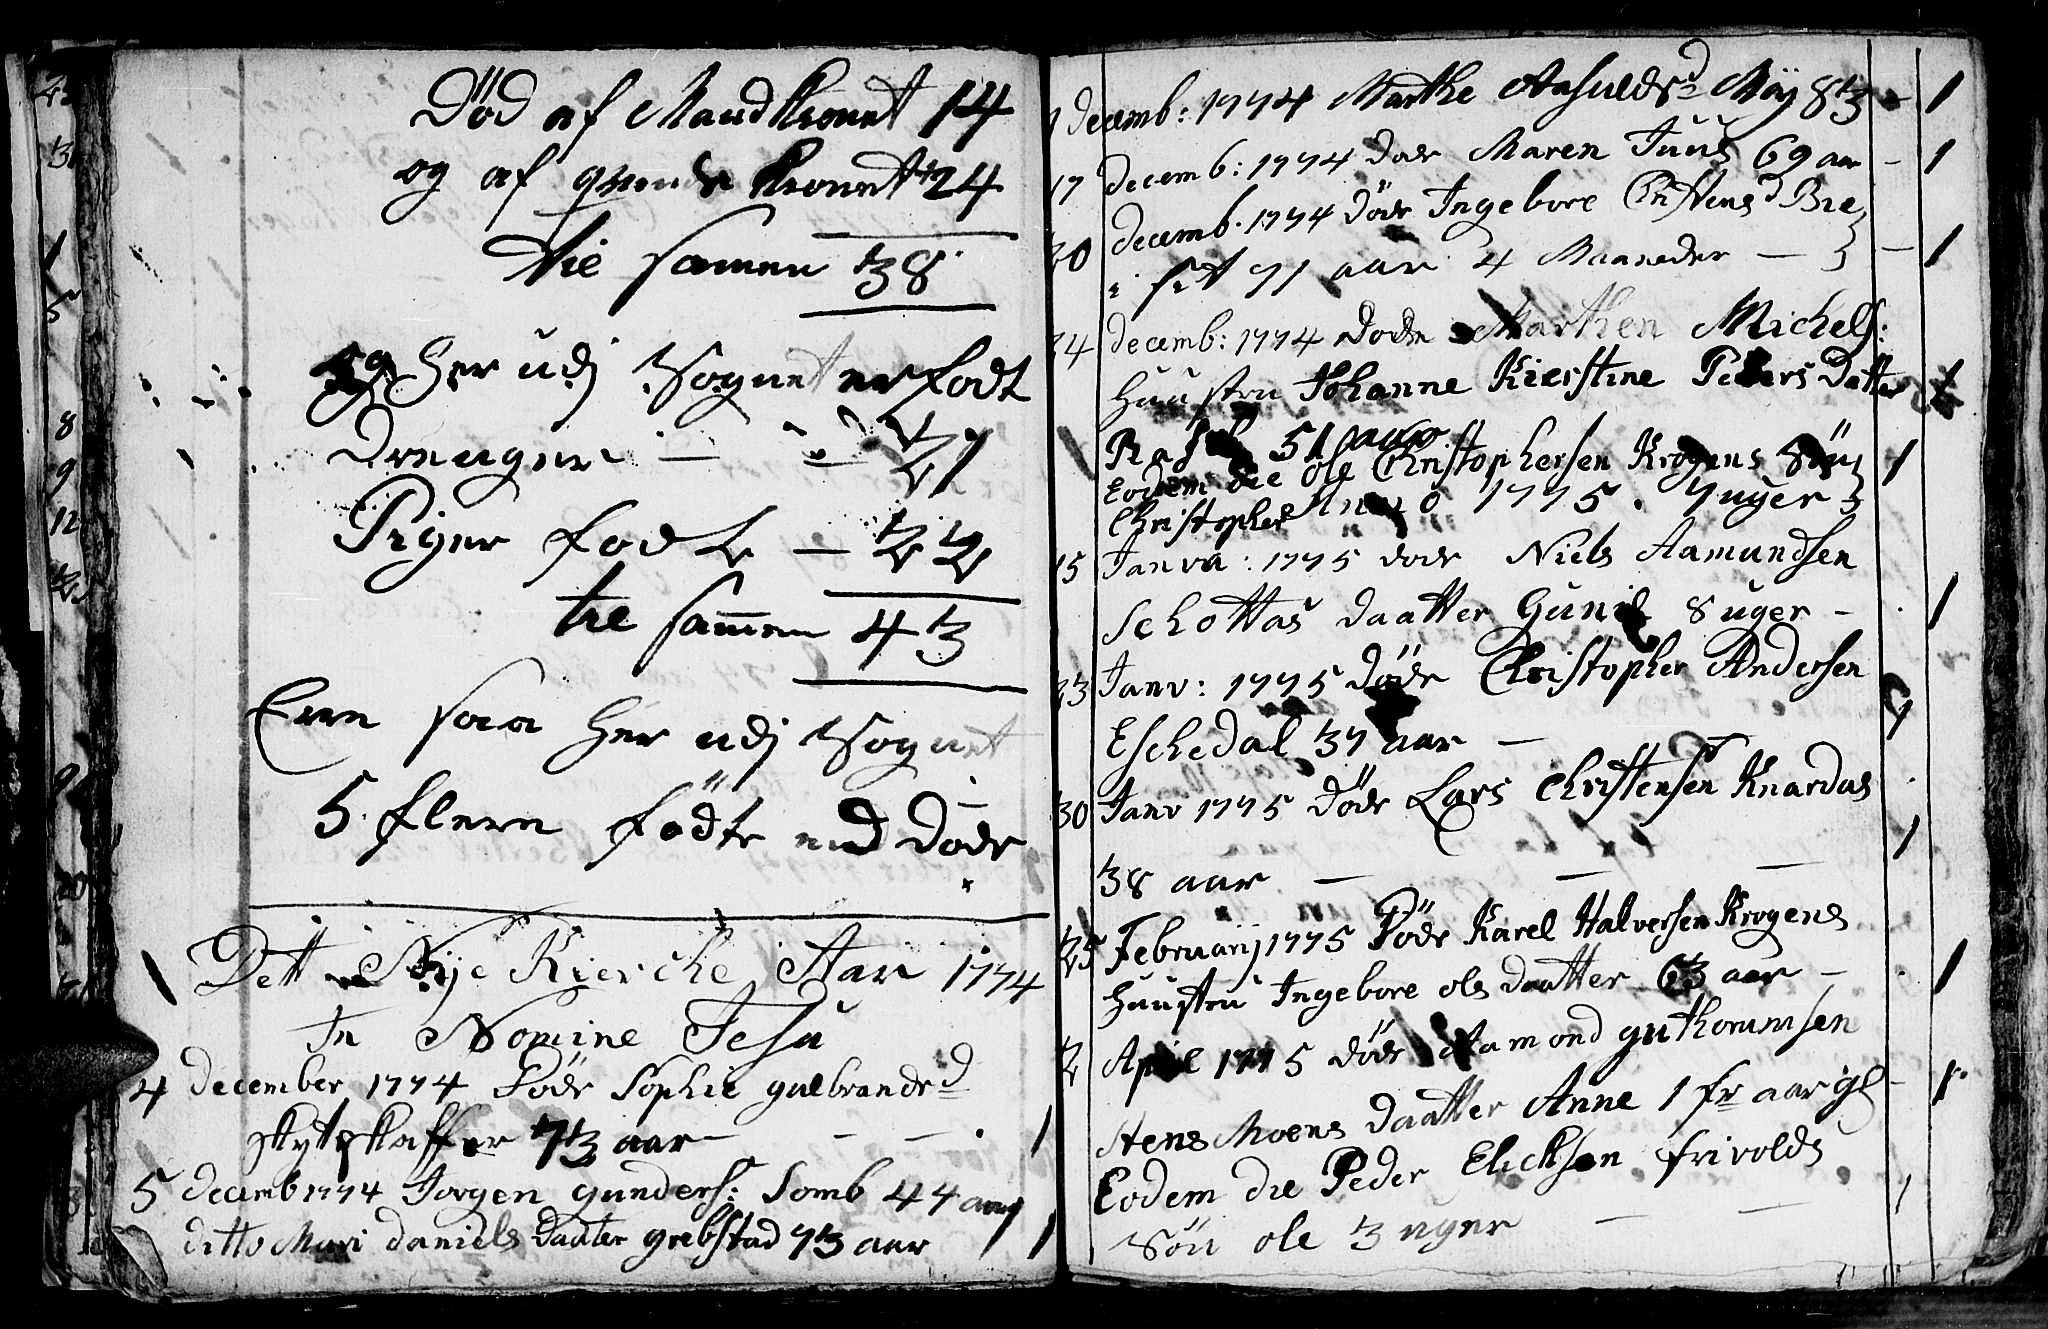 Död af Mandkönnet 14
og af qvinde könnet 24
tie samen 38
Her udj Sognet er født
Drenger — 21
Piger født — 22
tie samen 43
Eren saa her udj Sognet
5 flere födte end döde
Dett Nÿe Kierche Aar 1774
In Nomine Jesu
4 December 1774 Döde Sophie gulbrandsd
skytskaffer 73 aar — 1
5 decemb 1774 Jorgen gunders: Somb 44 aar 1
ditto Mari daniels Daater grebstad 73 aar 1
decemb: 1774 Marthe Aasuldsd Möÿ 83 — 1
17 decemb: 1774 döde Maren Juus 69 aar — 1
20 decemb. 1774 döde Ingebore Christensd Bie
i sit 71 aar 4 Maaneder — 1
24 decemb: 1774 döde Marthen Michels:
Huustru Johanne Kierstine Peders Datter 1
51 aar
Eodem die Ole Christophersen Krogens Sön 1
Christopher 7 uger
Anno 1775.
15 Janva: 1775 döde Niels Aamundsen
Schottas daatter Gunil 8 uger — 1
23 Janv: 1775 döde Christopher Andersen
Eschedal 37 aar — 1
30 Janv 1775 döde Lars Christensen Knardas
38 aar — 1
25 Februarij 1775 Döde Karel Halversen Krogens
Huustru Ingebore ols daatter 63 aar — 1
2 April 1775 döde Aamond guthormsen
Stens Moens daatter Anne 1 fr aar gl — 1
Eodem die Peder Elichsen frivolds
Sön ole 3 uger — 1